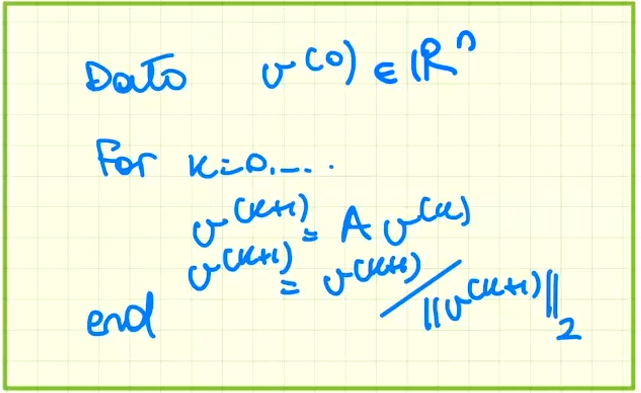 Dato v^(0) ∈ ℝ^n
For k=0,....
v^(k+1) = A v^(k)
v^(k+1) = v^(k+1) / ||v^(k+1)||_2
end